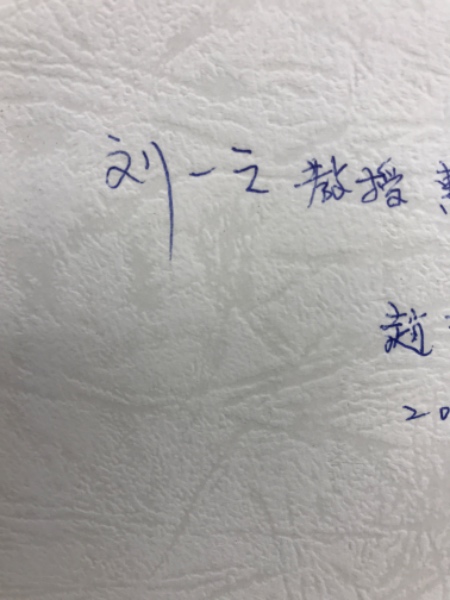 刘一之教授
趙
20